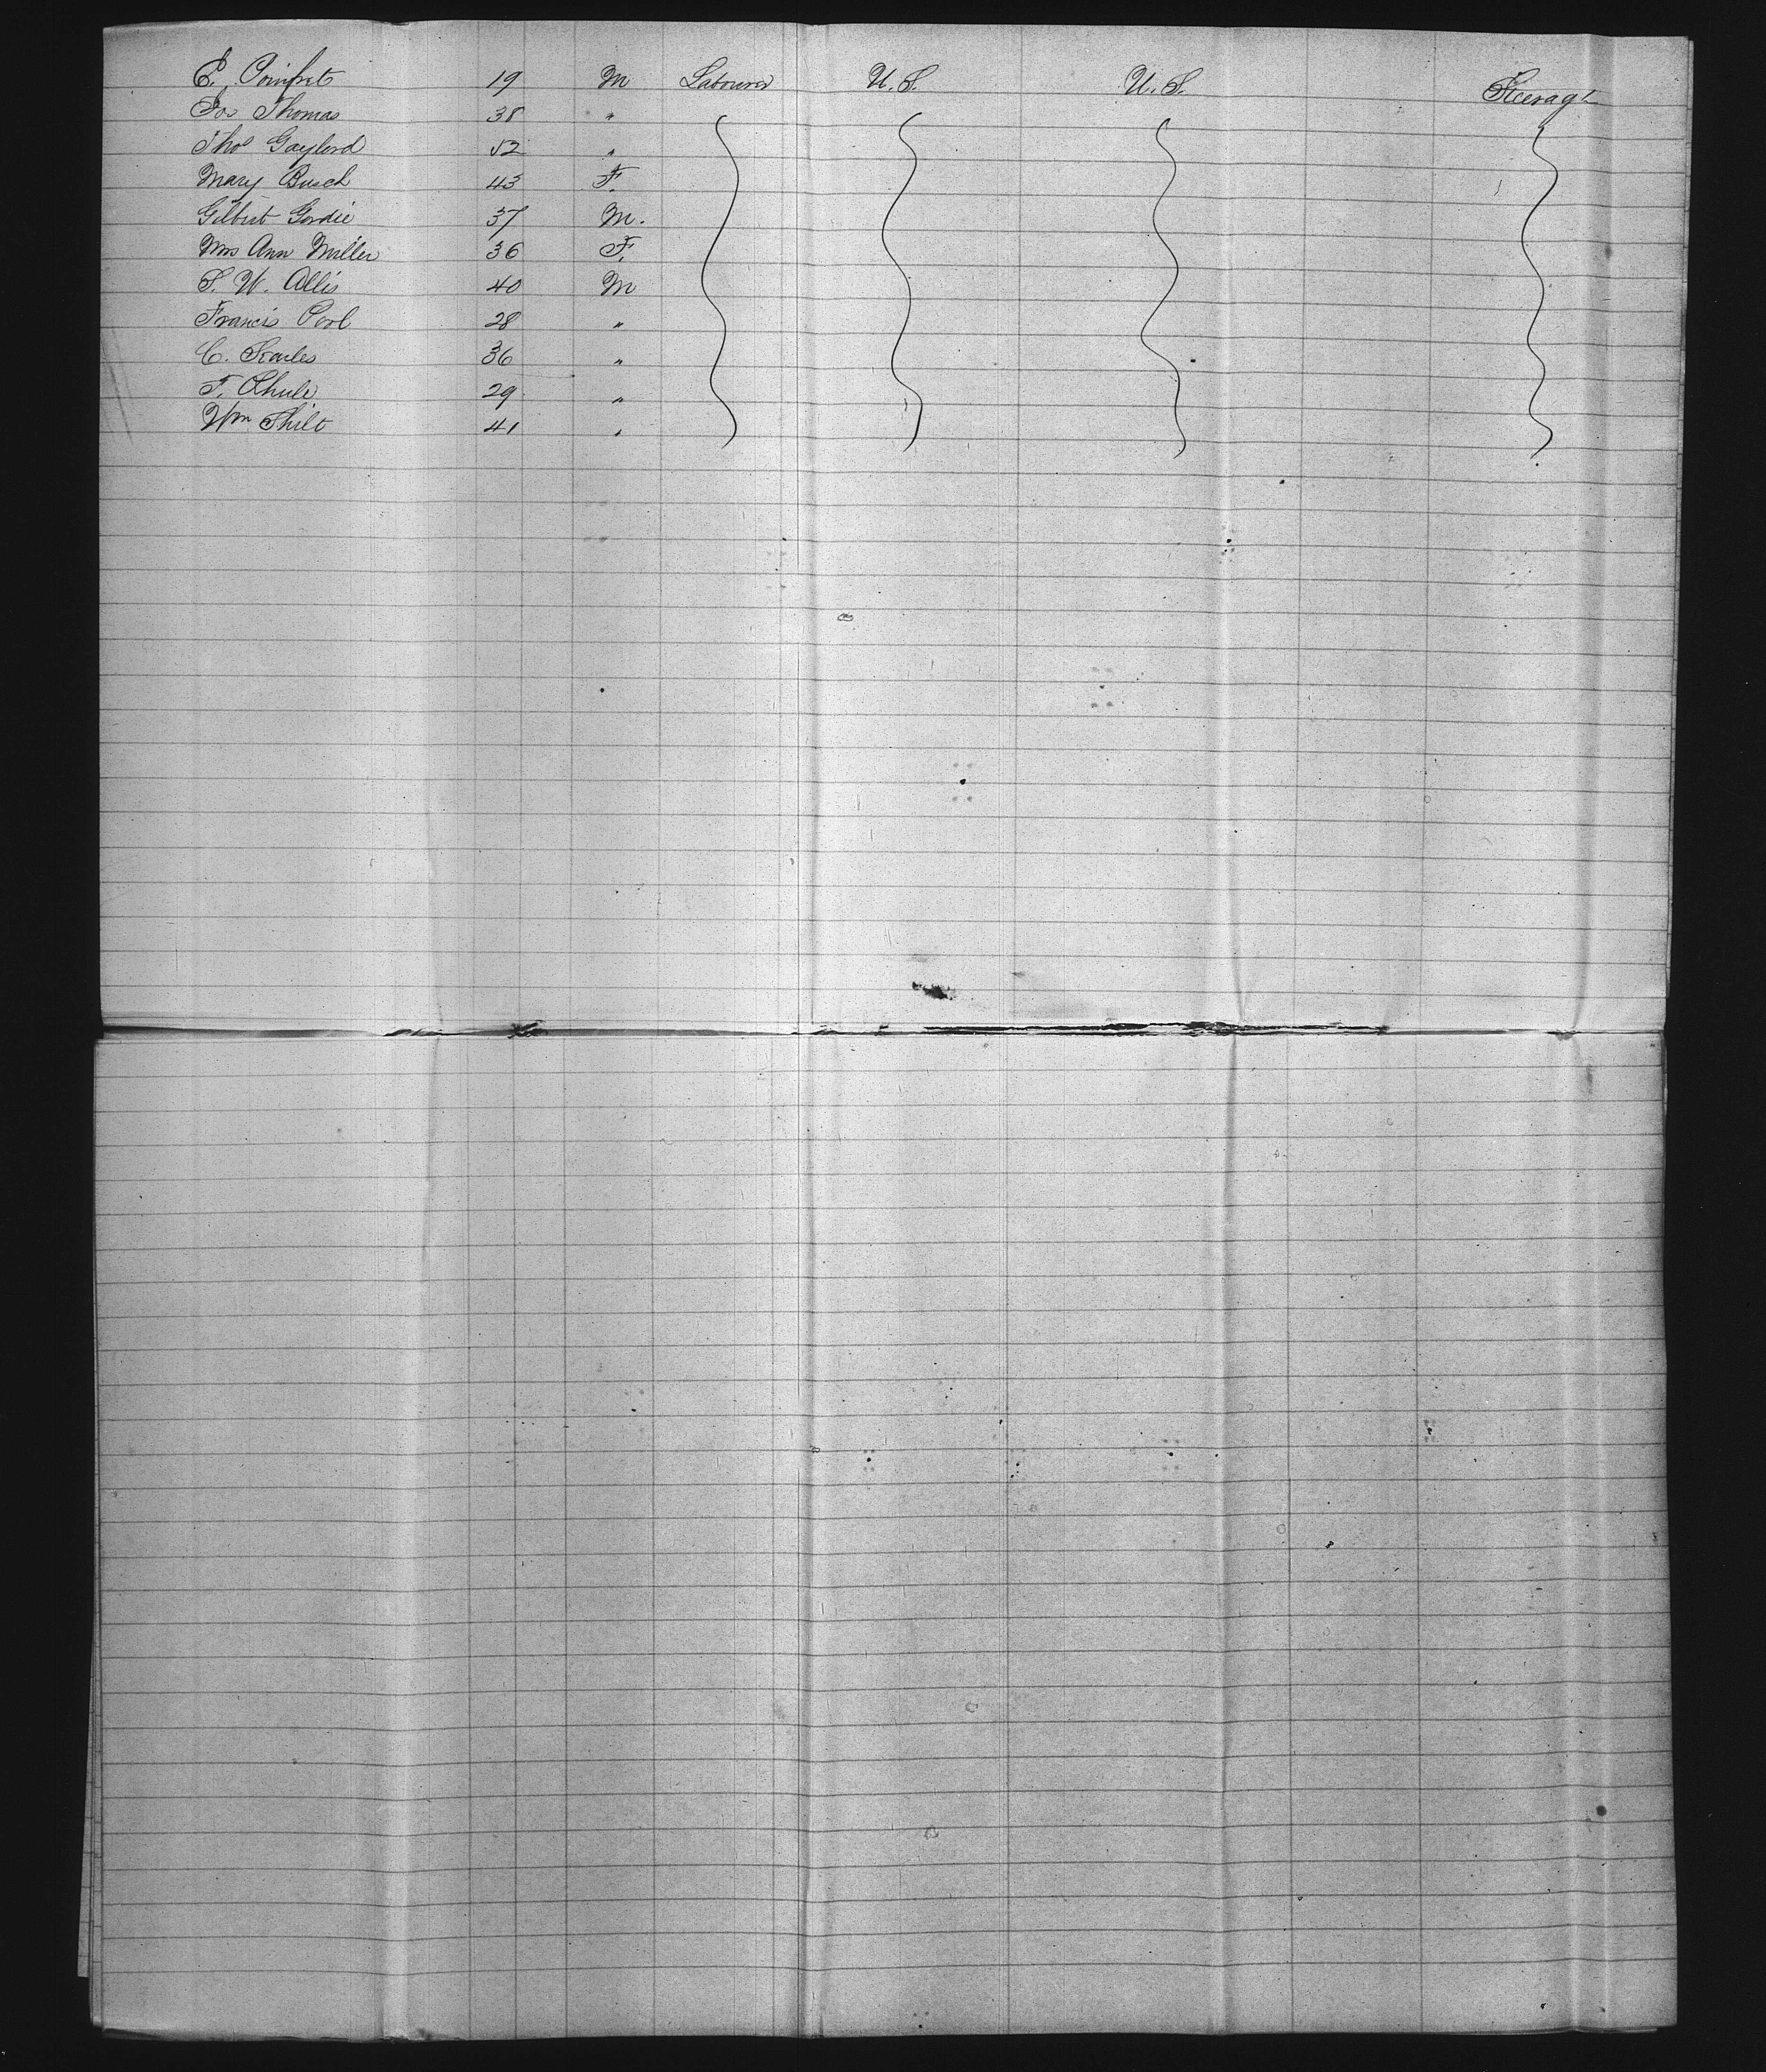 E. Pomfret 19 M Labourer U.S. U.S. Steerage
Jos Thomas 38 "
Thos Gaylord 52 "
Mary Busch 43 F.
Gilbert Gordie 37 M.
Mrs Ann Miller 36 F.
S. W. Allis 40 M
Francis Pool 28 "
C. Searles 36 "
F. 29 "
Wm Shilt 41 "